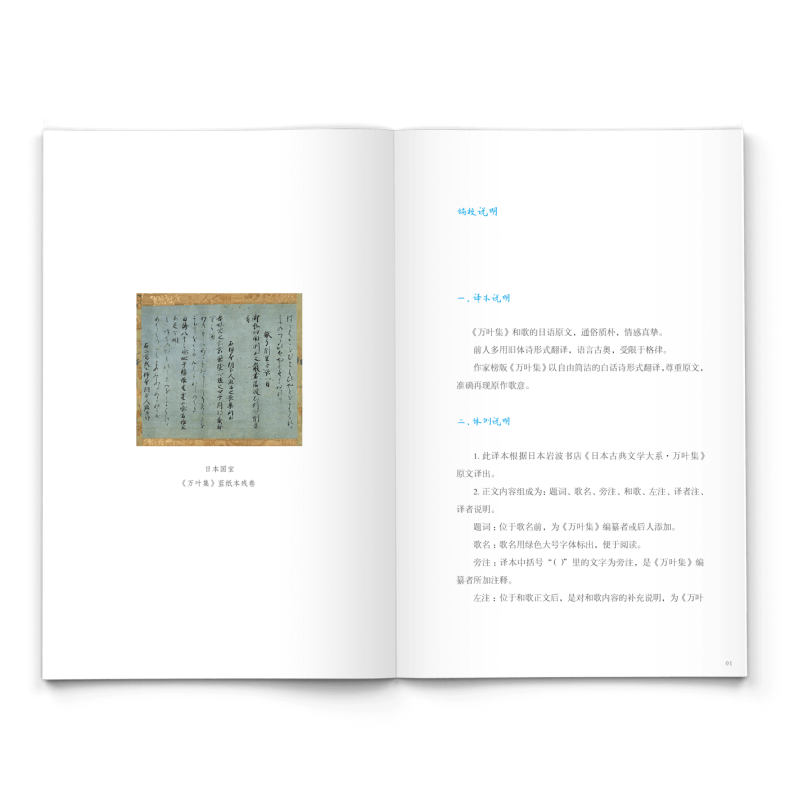 日本国宝
《万叶集》蓝纸本残卷
编校说明
一、译本说明
《万叶集》和歌的日语原文，通俗质朴，情感真挚。
前人多用旧体诗形式翻译，语言古奥，受限于格律。
作家榜版《万叶集》以自由简洁的白话诗形式翻译，尊重原文，
准确再现原作歌意。
二、体例说明
1. 此译本根据日本岩波书店《日本古典文学大系·万叶集》
原文译出。
2. 正文内容组成为：题词、歌名、旁注、和歌、左注、译者注、
译者说明。
题词：位于歌名前，为《万叶集》编纂者或后人添加。
歌名：歌名用绿色大号字体标出，便于阅读。
旁注：译本中括号“（ ）”里的文字为旁注，是《万叶集》编
纂者所加注释。
左注：位于和歌正文后，是对和歌内容的补充说明，为《万叶
01